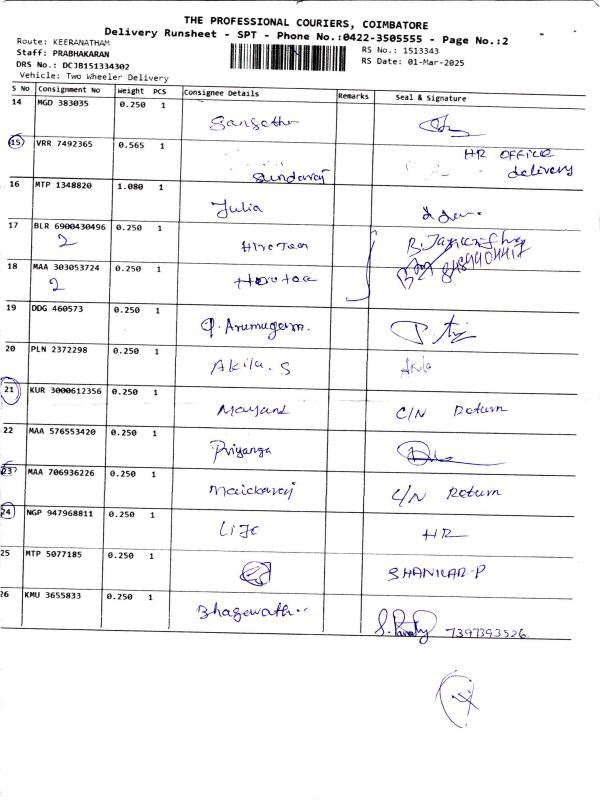 THE PROFESSIONAL COURIERS, COIMBATORE
Delivery Runsheet - SPT - Phone No.:0422-3505555 - Page No.:2
Route: KEERANATHAM
Staff: PRABHAKARAN
DRS No.: DCJB151334302
Vehicle: Two Wheeler Delivery
RS No.: 1513343
RS Date: 01-Mar-2025
S No Consignment No Weight PCS Consignee Details Remarks Seal & Signature
14 MGD 383035 0.250 1
15 VRR 7492365 0.565 1 Sundaraj HR OFFICE delivery
16 MTP 1348820 1.080 1 Julia
17 BLR 6900430496 0.250 1
2
18 MAA 303053724 0.250 1
2
19 DDG 460573 0.250 1 P. Arumugam.
20 PLN 2372298 0.250 1 Akila. S Akila
21 KUR 3000612356 0.250 1 C/N Return
22 MAA 576553420 0.250 1 Priyanga
23 MAA 706936226 0.250 1 C/N Return
24 NGP 947968811 0.250 1 LIFE HR
25 MTP 5077185 0.250 1 SHANKAR-P
26 KMU 3655833 0.250 1 7397393526